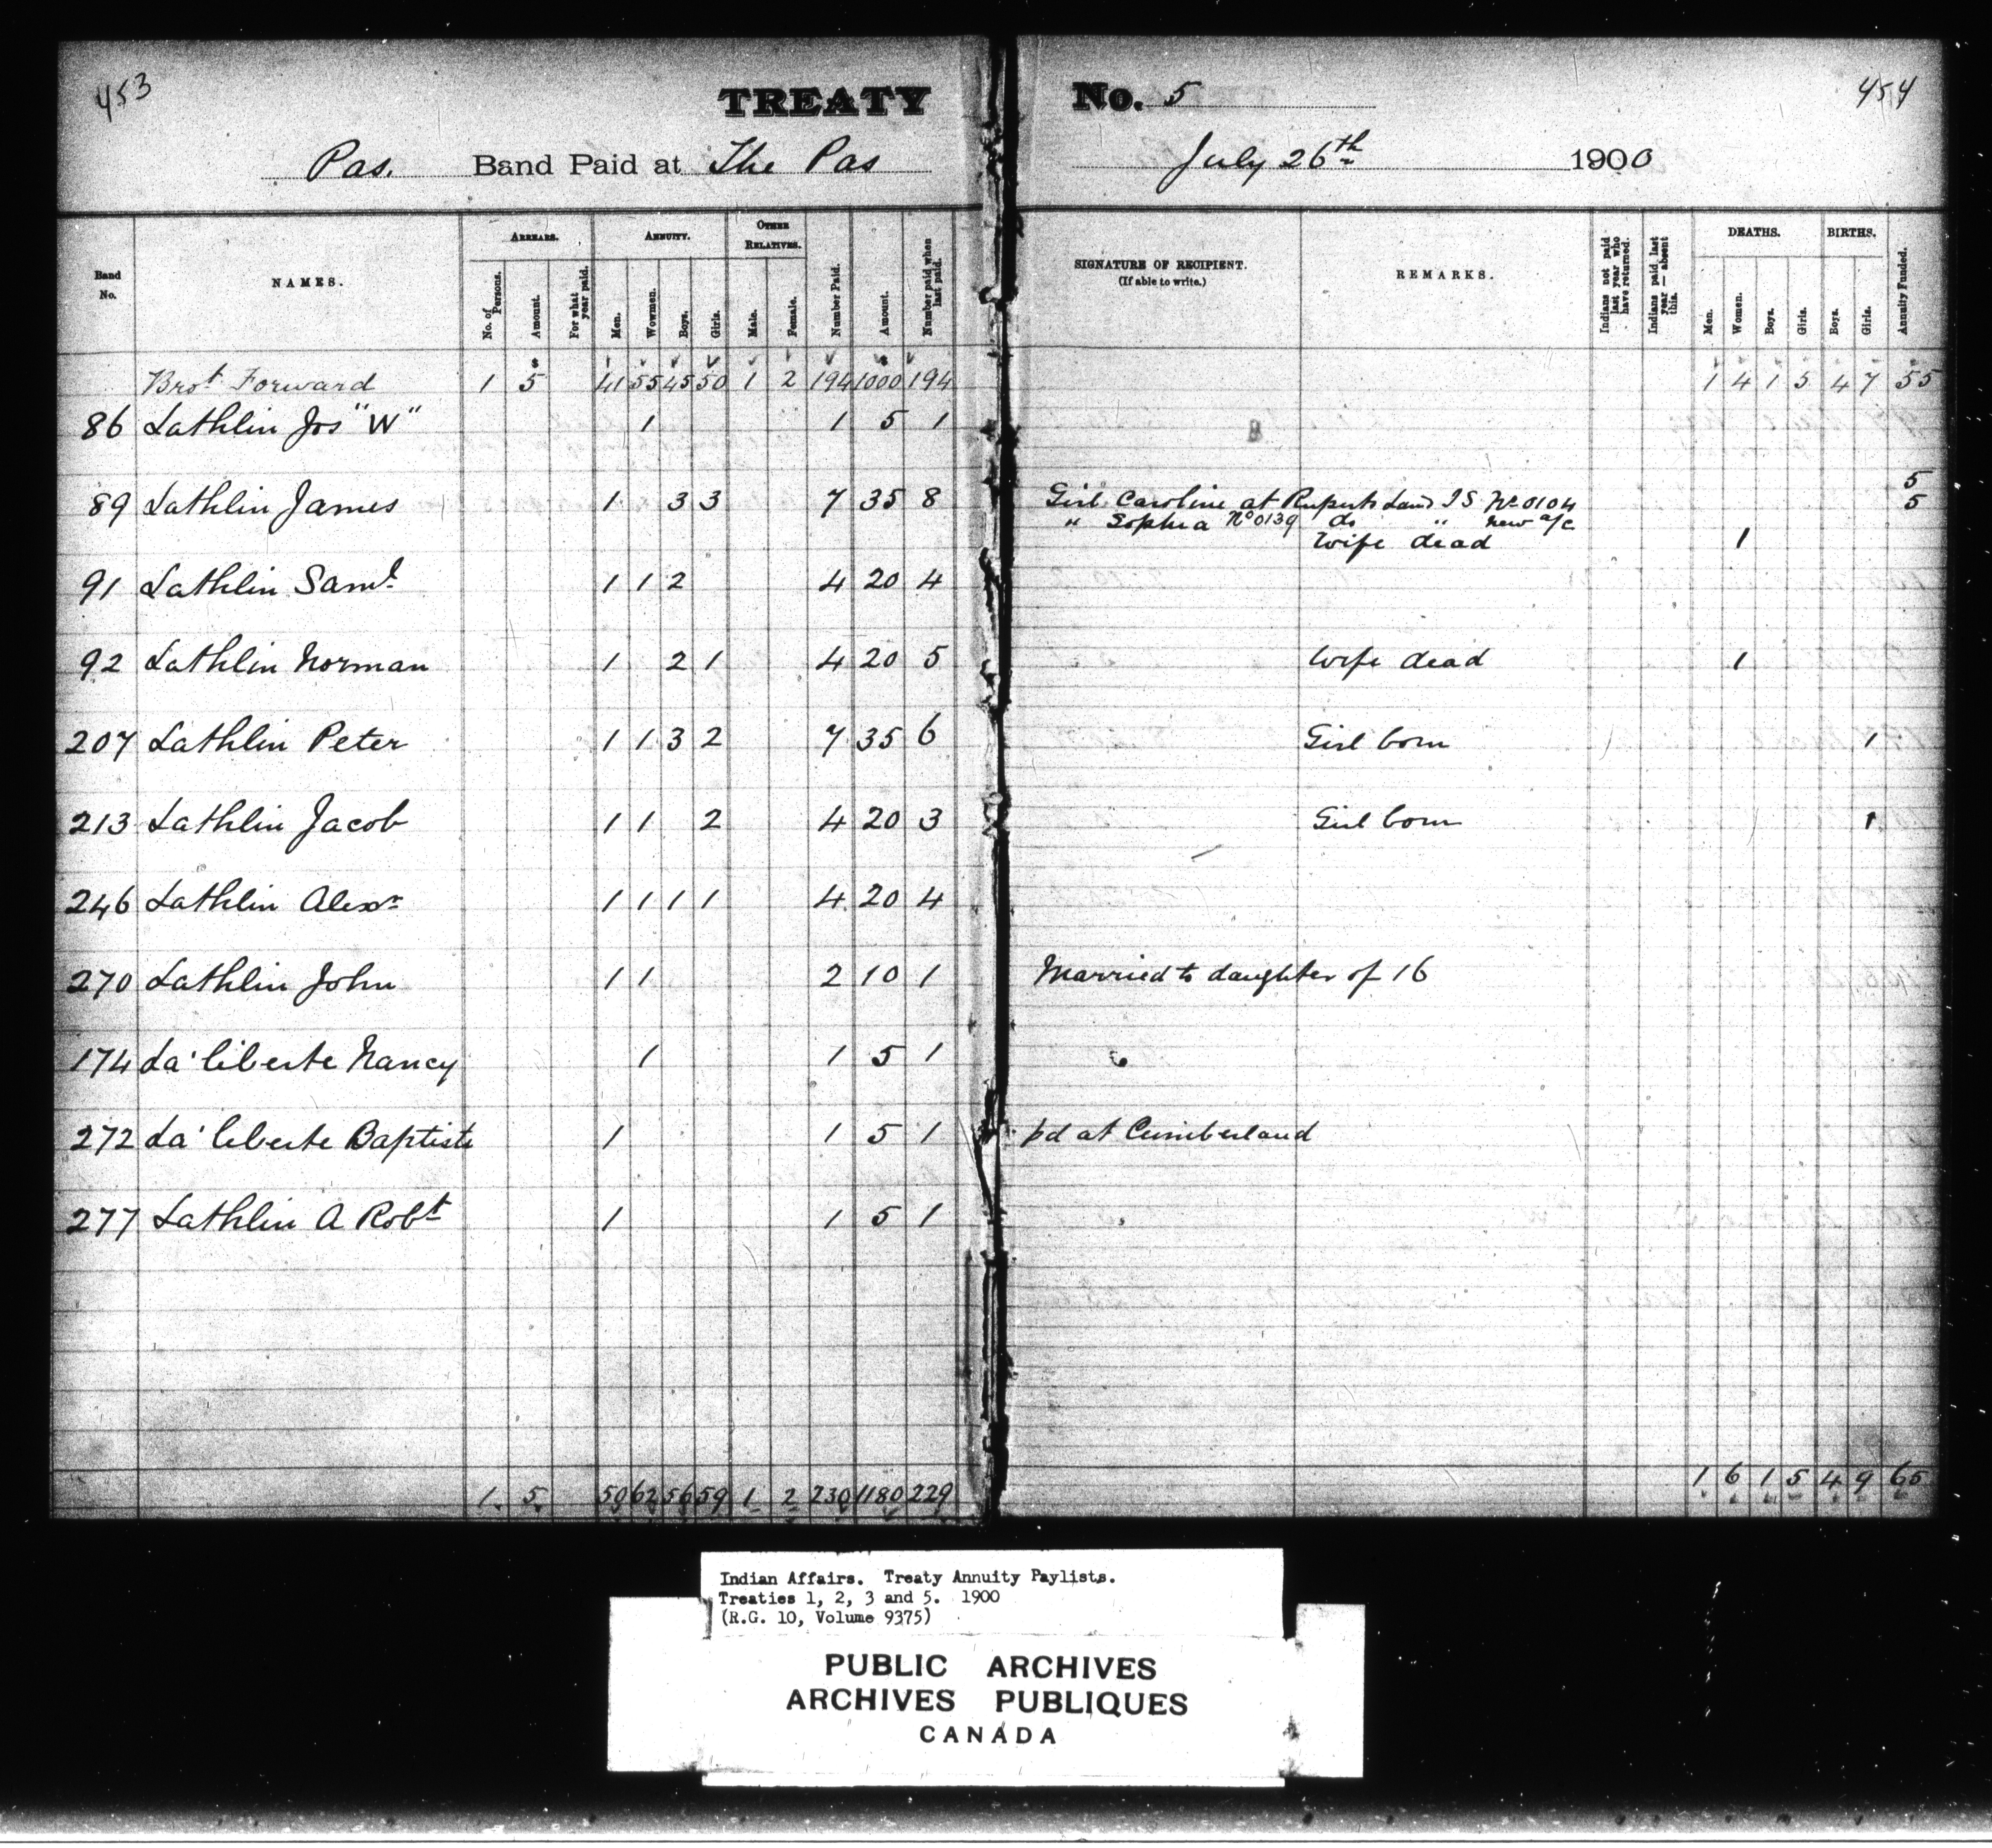 453
TREATY No. 5
454
Pas. Band Paid at The Pas July 26th 1900
Band No.
NAMES.
ARREARS.
No. of Persons.
Amount.
For what year paid.
ANNUITY.
Men.
Wowmen.
Boys.
Girls.
OTHER RELATIVES.
Male.
Female.
Number Paid.
Amount.
Number paid when last paid.
SIGNATURE OF RECIPIENT.
(If able to write.)
REMARKS.
Indians not paid last year who have returned.
Indians paid last year — absent this.
DEATHS.
Men.
Women.
Boys.
Girls.
BIRTHS.
Boys.
Girls.
Annuity Funded.
$ $
Brot Forward 1 5 41 55 45 50 1 2 194 1000 194 1 4 1 5 4 7 55
86 Lathlin Jos "W" 1 1 5 1
89 Lathlin James 1 3 3 7 35 8 Girl Caroline at Ruperts Land I S No 0104 5
" Sophia No 0139 do " new a/c 5
Wife dead 1
91 Lathlin Saml 1 1 2 4 20 4
92 Lathlin Norman 1 2 1 4 20 5 Wife dead 1
207 Lathlin Peter 1 1 3 2 7 35 6 Girl born 1
213 Lathlin Jacob 1 1 2 4 20 3 Girl born 1
246 Lathlin Alexr 1 1 1 1 4 20 4
270 Lathlin John 1 1 2 10 1 Married to daughter of 16
174 La'liberte Nancy 1 1 5 1
272 La'liberte Baptiste 1 1 5 1 pd at Cumberland
277 Lathlin A Robt 1 1 5 1
1 5 50 62 56 59 1 2 230 1180 229 1 6 1 5 4 9 65
Indian Affairs. Treaty Annuity Paylists.
Treaties 1, 2, 3 and 5. 1900
(R.G. 10, Volume 9375)
PUBLIC ARCHIVES
ARCHIVES PUBLIQUES
CANADA